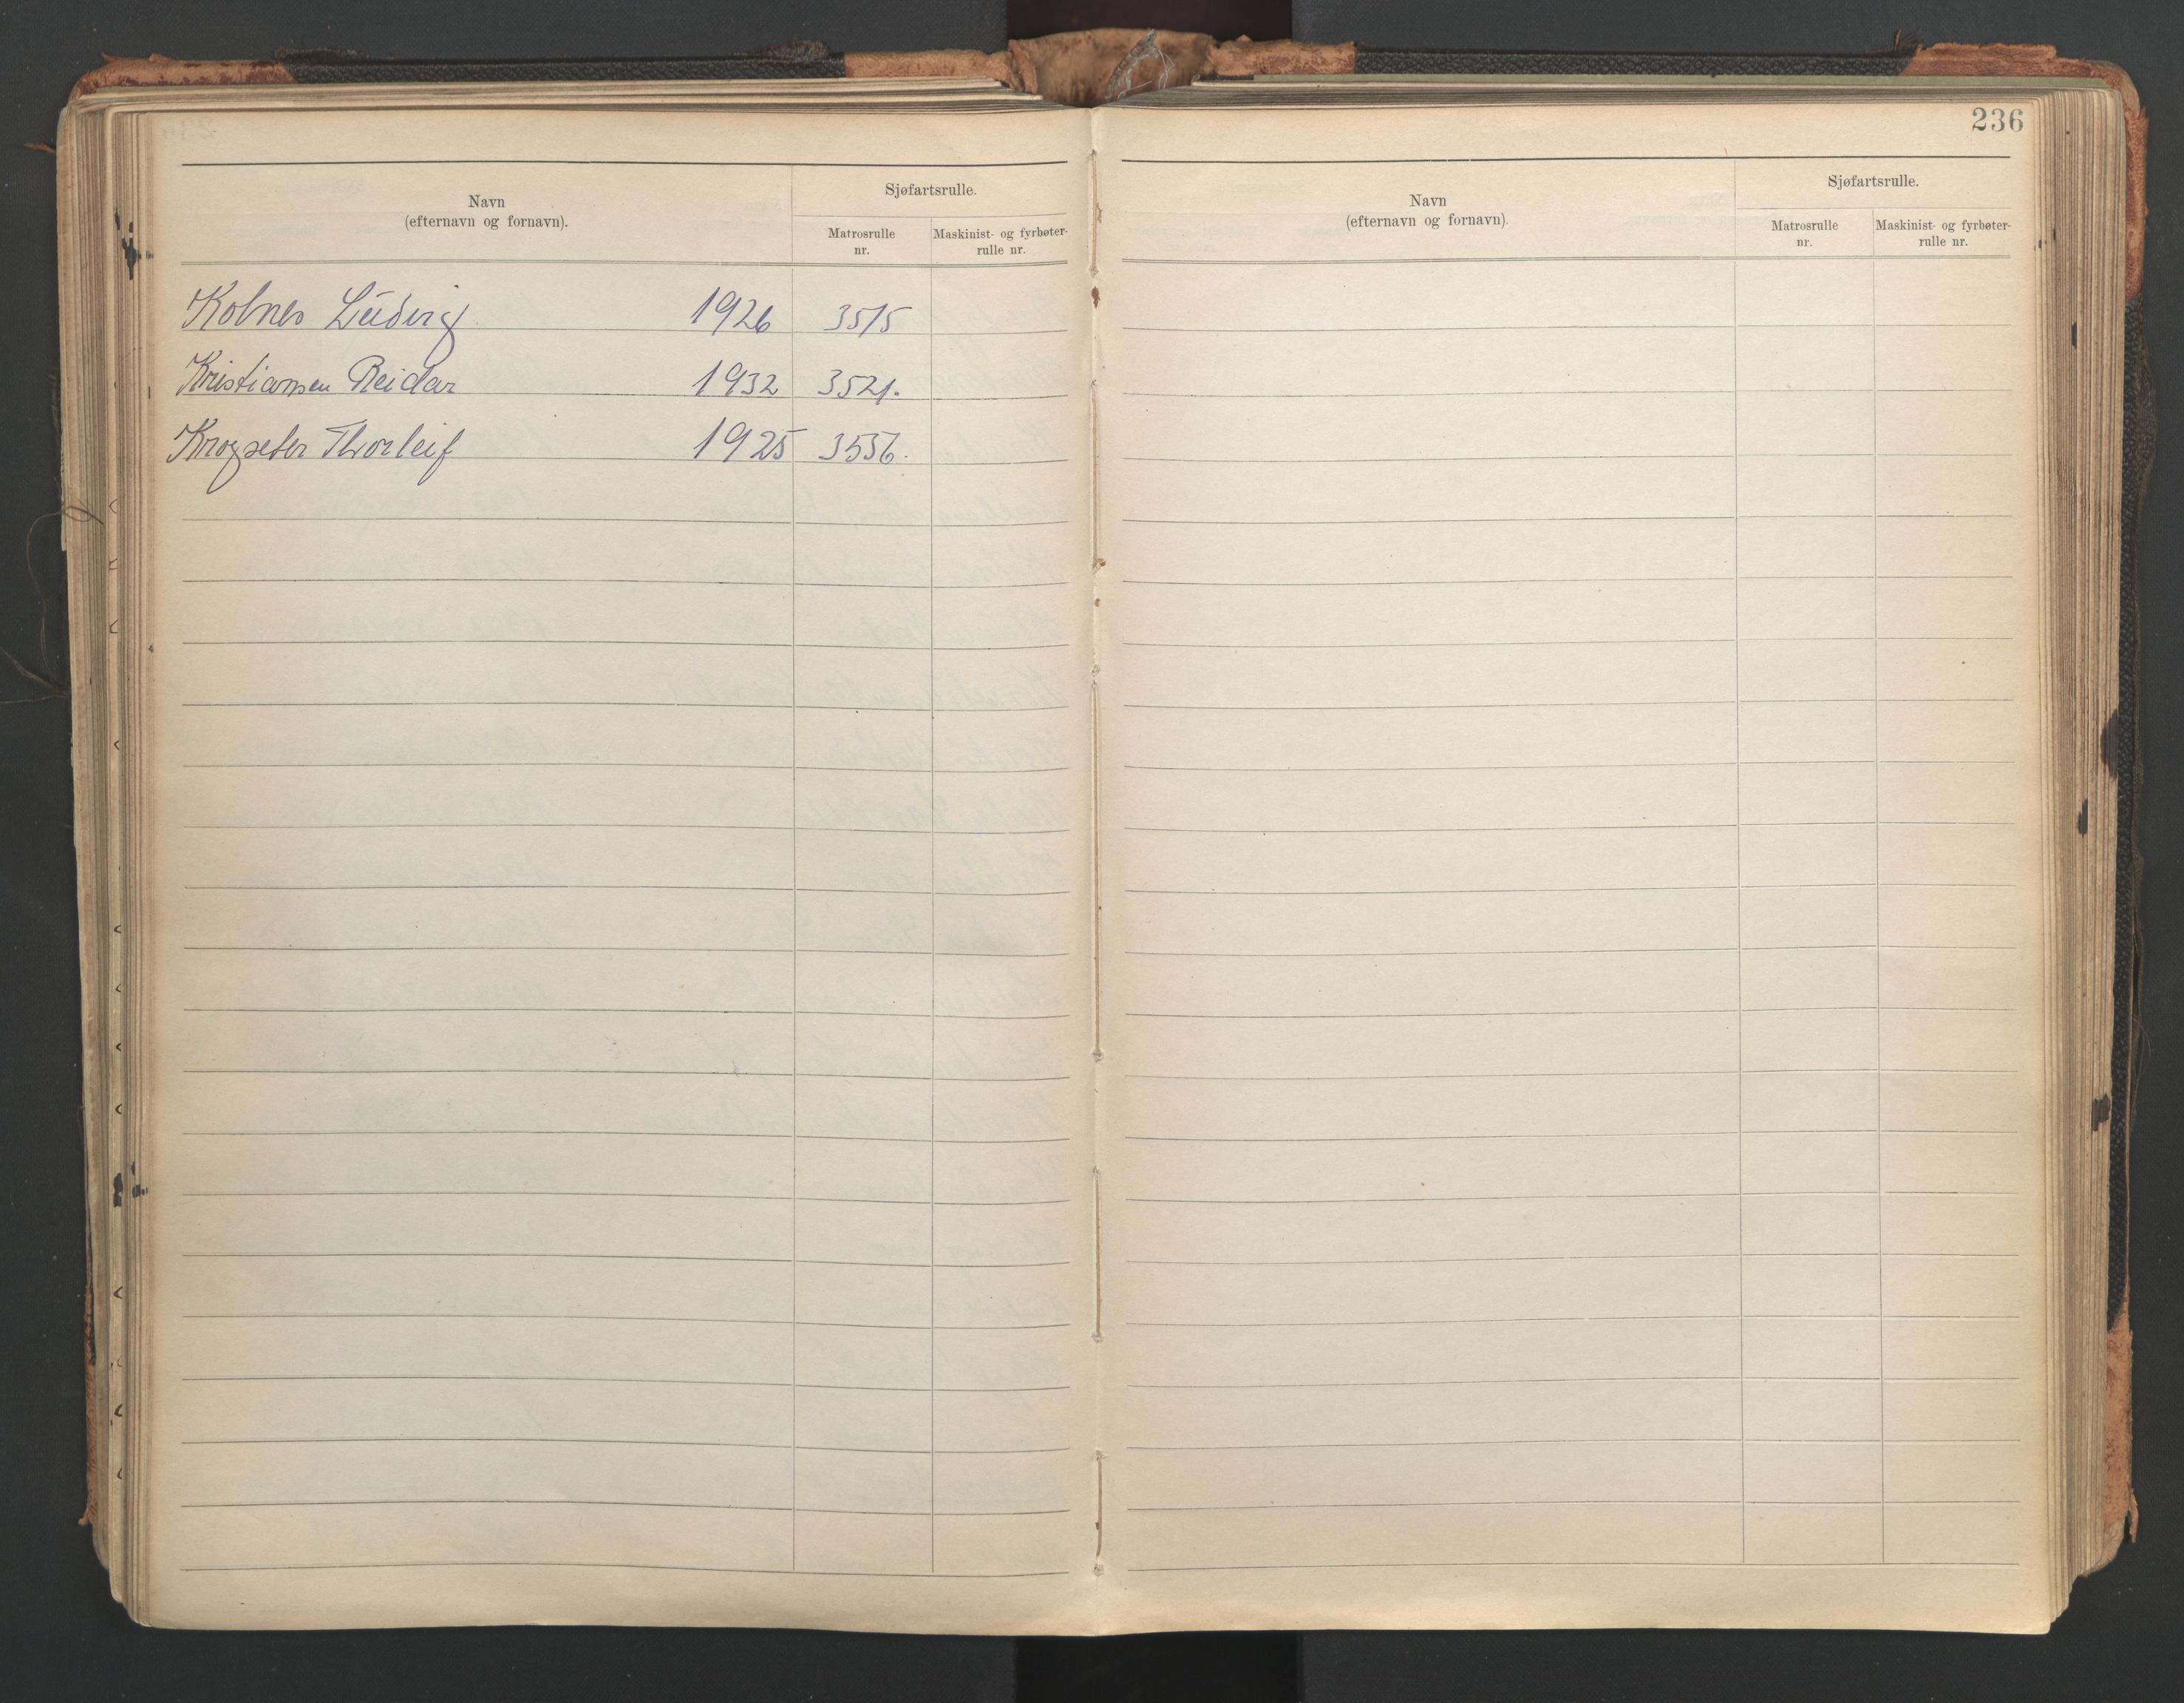 Navn
(efternavn og fornavn).
Sjøfartsrulle.
Matrosrulle
nr.
Maskinist- og fyrbøter-
rulle nr.
Kolnes Ludvig 1926 3515
Kristiansen Reidar 1932 3521.
Krogseter Thorleif 1925 3556.
236
Navn
(efternavn og fornavn).
Sjøfartsrulle.
Matrosrulle
nr.
Maskinist- og fyrbøter-
rulle nr.